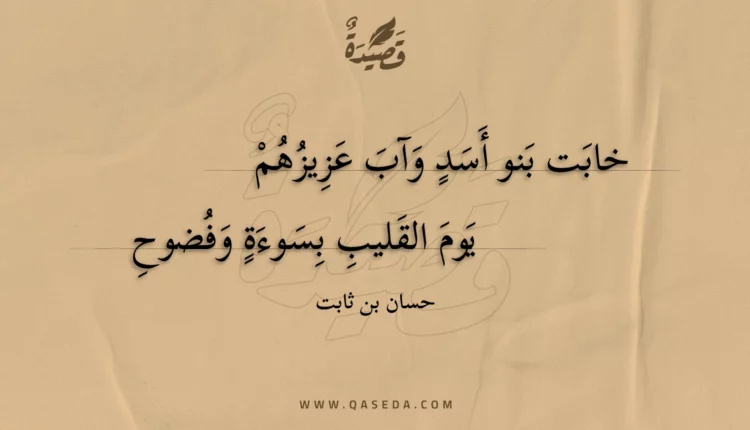 قَصِيدَةٌ
خابَت بَنو أَسَدٍ وَآبَ عَزِيزُهُمْ
يَومَ القَليبِ بِسَوءَةٍ وَفُضوحِ
حسان بن ثابت
WWW.QASEDA.COM